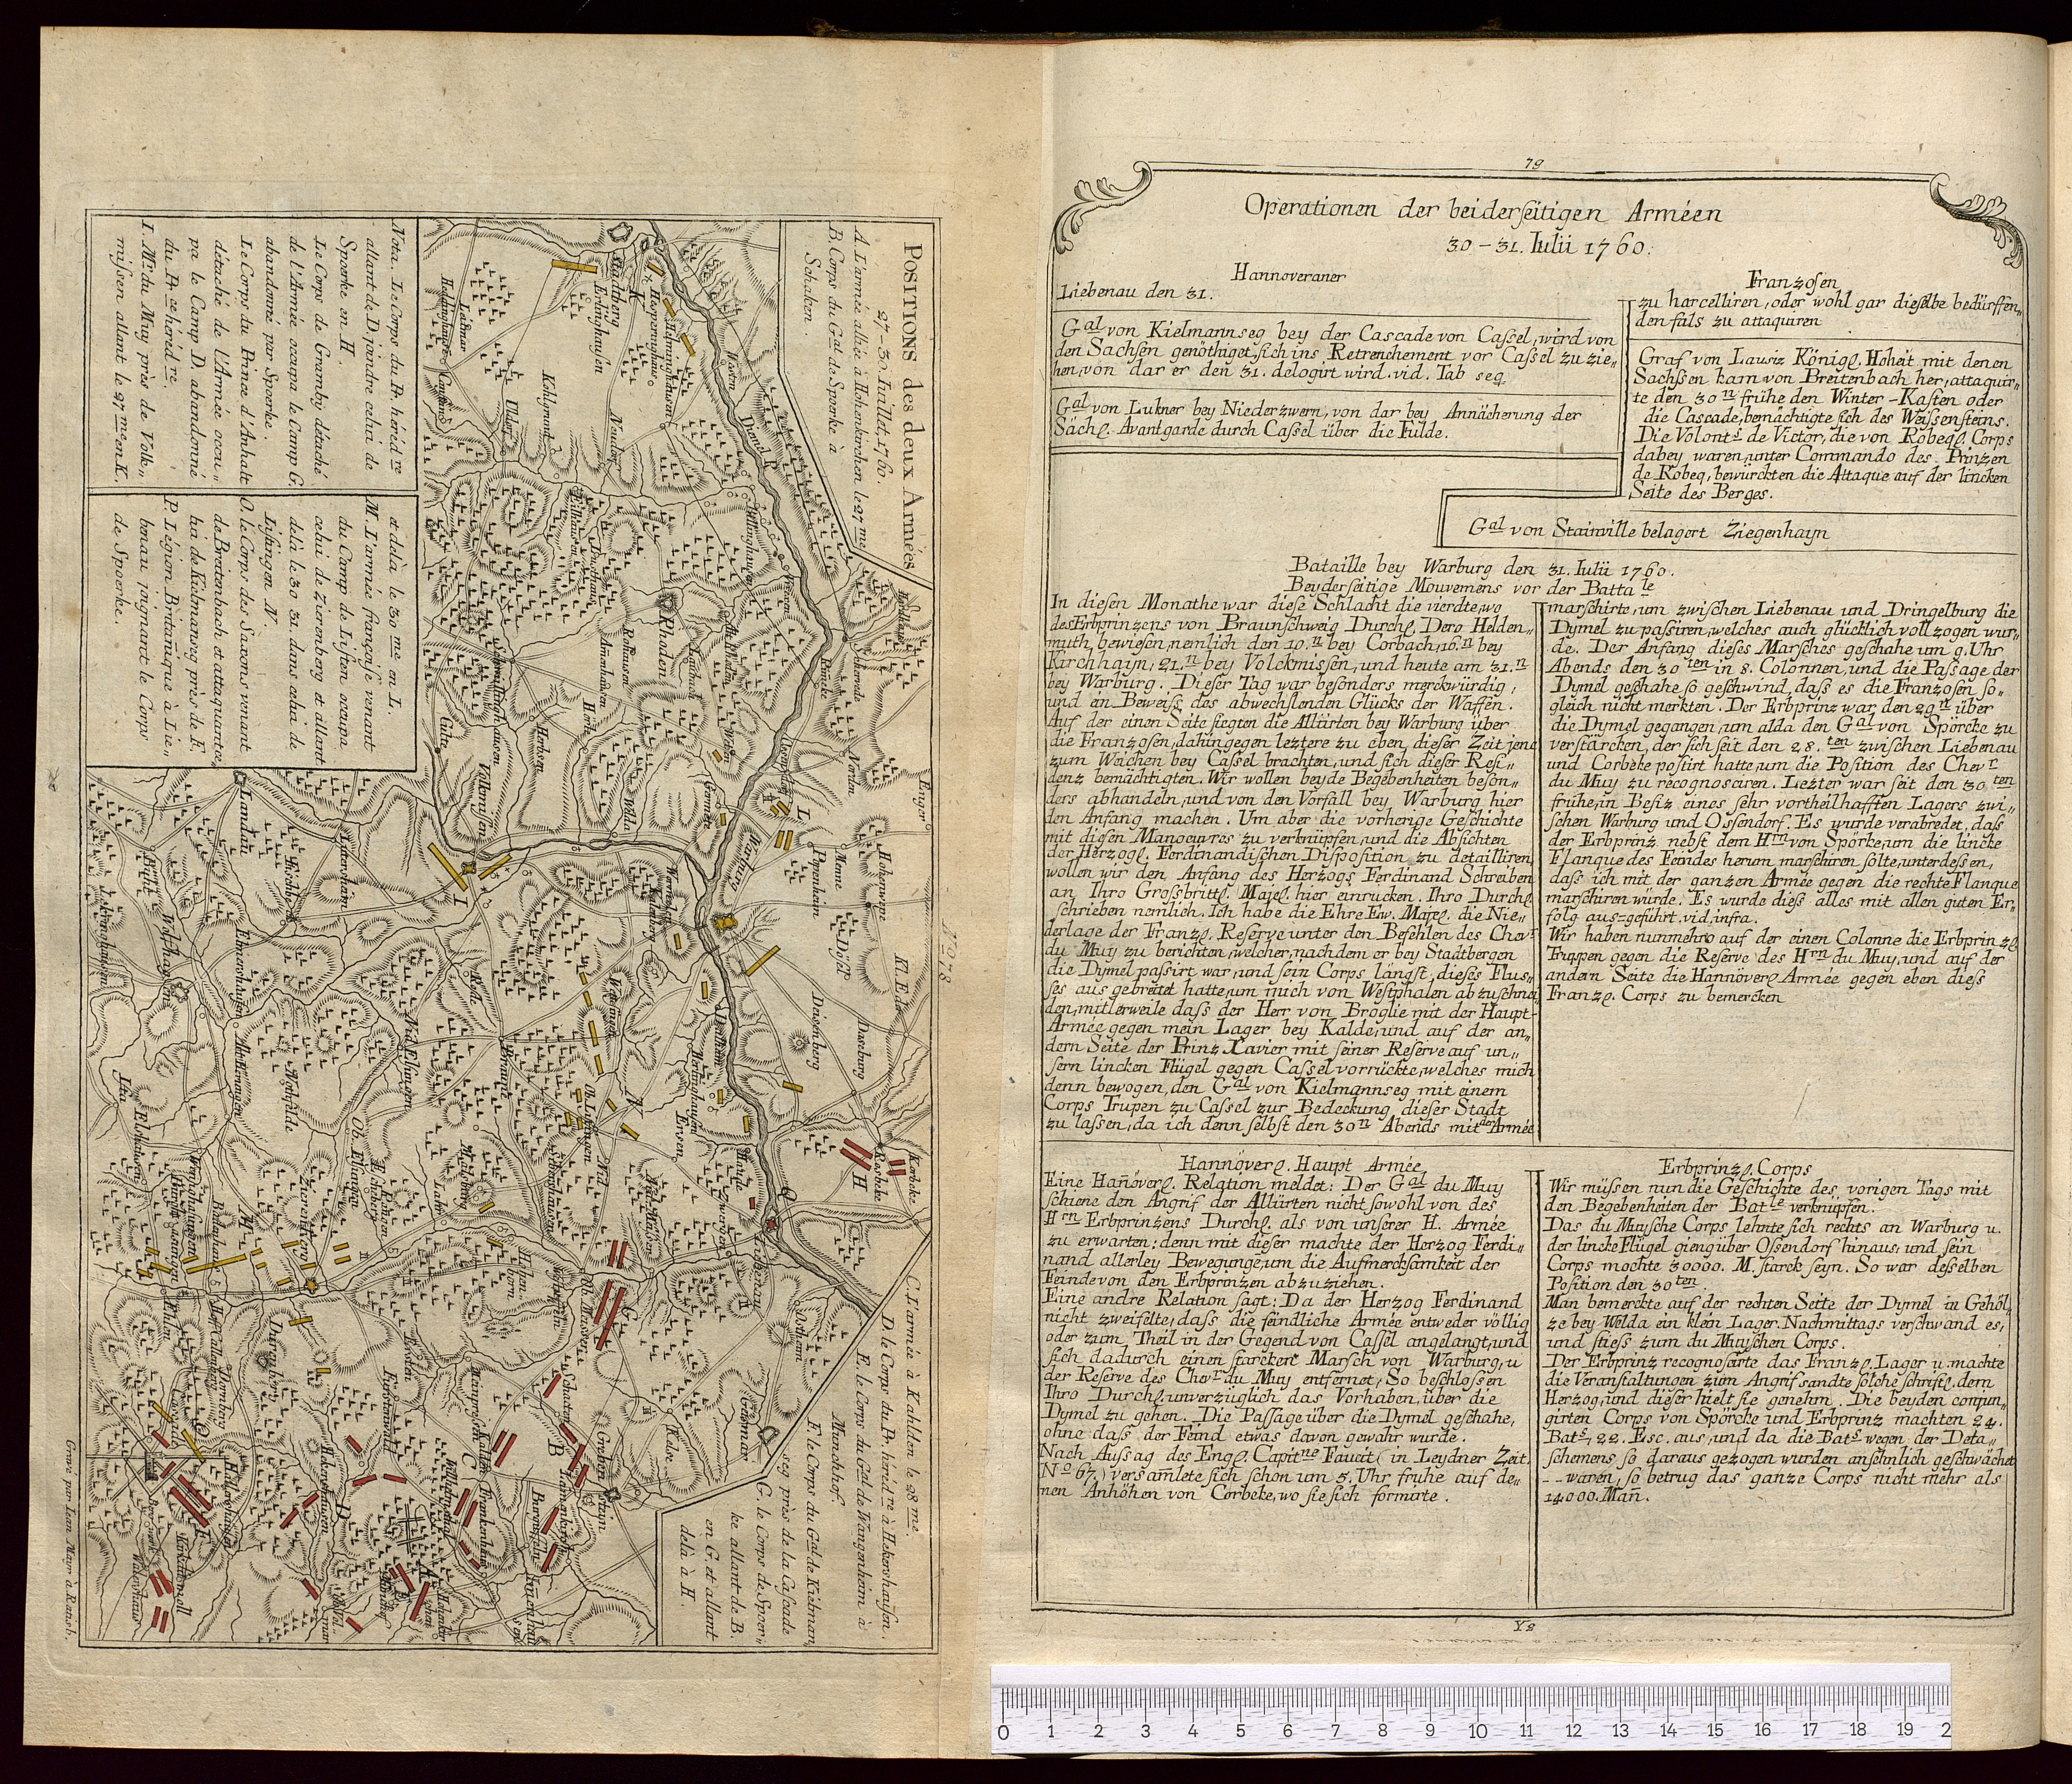 POSITIONS des deux Armées
27–30. Juillet. 1760.
A. L'armée alliée à Hohenkirchen le 27 me.
B. Corps du Gal. de Sporke à
Schaken.
C. L'armée à Kahlden le 28 me.
D. le Corps du Pr. herid re à Hekershausen.
E. le Corps du Gal. de Wangenheim à
Munchhof.
F. le Corps du Gal. de Kielman,,
seg près de la Cascade
G. le Corps de Spor,,
ke allant de B.
en G. et allant
delà à H.
Nota. Le Corps du Pr. héréd re
allant de D joindre celui de
Sporke en H.
Le Corps de Gramby détaché
de l'Armée occupa le Camp G.
abandonné par Spoerke.
Le Corps du Prince d'Anhalt
détaché de l'Armée occu,,
pa le Camp D. abandonné
du Pr ce héréd re.
I. Mr. du Muy près de Volk,,
missen allant le 27 me en K.
et delà le 30 me en L.
M. L'armée française venant
du Camp de Liston occupa
celui de Zierenberg et allant
delà le 30 31. dans celui de
Lisingen N.
O. le Corps des Saxons venant
de Breitenbach et attaquant ce,,
lui de Kielmanseg près de F.
P. Légion Britanique à Lie,,
benau joignant le Corps
de Spoerke.
Stadtberg
Erlinghausen
Rhoden
Volkmissen
Landau
Warburg
Wolfhagen
Zierenberg
Liebenau
Dörnberg
Grebenstein
Calden
Wilhelmsthal
N° 078
Gravé par Leon. Mayr à Ratisb.
79
Operationen der beiderseitigen Arméen
30–31. Iulii 1760.
Hannoveraner
Liebenau den 31.
Gal von Kielmannseg bey der Cascade von Cassel, wird von
den Sachsen genöthiget, sich ins Retrenchement vor Cassel zu zie,,
hen, von dar er den 31. delogirt wird. vid. Tab seq.
Gal von Lukner bey Niederzwern, von dar bey Annächerung der
Sächs. Avantgarde durch Cassel über die Fulde.
Franzosen
zu harcelliren, oder wohl gar dieselbe bedürffen,,
den fals zu attaquiren
Graf von Lausiz Königl. Hoheit mit denen
Sachssen kam von Breitenbach her, attaquir,,
te den 30 n frühe den Winter-Kasten oder
die Cascade, bemächtigte sich des Weissensteins.
Die Volonts de Victor, die von Robeqs. Corps
dabey waren, unter Commando des Prinzen
de Robeq, bewürckten die Attaque auf der lincken
Seite des Berges.
Gal von Stainville belagert Ziegenhayn
Bataille bey Warburg den 31. Iulii 1760.
Beyderseitige Mouvemens vor der Batta le
In diesen Monathe war diese Schlacht die vierdte, wo
des Erbprinzens von Braunschweig Durchl. Dero Helden,,
muth bewiesen, nemlich den 10. n bey Corbach, 16. n bey
Kirchhayn, 21. n bey Volckmissen, und heute am 31. n
bey Warburg. Dieser Tag war besonders merckwürdig,
und ein Beweiss des abwechslenden Glücks der Waffen.
Auf der einen Seite siegten die Alliirten bey Warburg über
die Franzosen, dahingegen leztere zu eben dieser Zeit jene
zum Weichen bey Cassel brachten, und sich dieser Resi,,
denz bemächtigten. Wir wollen beyde Begebenheiten beson,,
ders abhandeln, und von den Vorfall bey Warburg hier
den Anfang machen. Um aber die vorherige Geschichte
mit diesen Manoeuvres zu verknüpfen, und die Absichten
der Herzogl. Ferdinandischen Disposition zu detailliren
wollen wir den Anfang des Herzogs Ferdinand Schreiben
an Ihro Grossbrittl. Majes. hier einrucken. Ihro Durchl.
schrieben nemlich. Ich habe die Ehre Ew. Majes. die Nie,,
derlage der Franzs. Reserve unter den Befehlen des Chevr
du Muy zu berichten, welcher, nachdem er bey Stadtbergen
die Dymel passirt war, und sein Corps längst, dieses Flus,,
ses aus gebreitet hatte, um mich von Westphalen abzuschnei
den, mitlerweile dass der Herr von Broglie mit der Haupt-
Armée gegen mein Lager bey Kalde, und auf der an,,
dern Seite der Prinz Xavier mit seiner Reserve auf un,,
sern lincken Flügel gegen Cassel vorrückte, welches mich
denn bewogen, den Gal von Kielmannseg mit einem
Corps Trupen zu Cassel zur Bedeckung dieser Stadt
zu lassen, da ich denn selbst den 30 n Abends mit der Armée
marschirte, um zwischen Liebenau und Dringelburg die
Dymel zu passiren, welches auch glücklich vollzogen wur,,
de. Der Anfang dieses Marsches geschahe um 9. Uhr
Abends den 30 ten in 8. Colonnen, und die Passage der
Dymel geschahe so geschwind, dass es die Franzosen so,,
gleich nicht merkten. Der Erbprinz war den 29 n über
die Dymel gegangen, um alda den Gal von Spörcke zu
verstärcken, der sich seit den 28. ten zwischen Liebenau
und Corbeke postirt hatte, um die Position des Chevr
du Muy zu recognosciren. Lezter war seit den 30 ten
frühe, in Besiz eines sehr vortheilhafften Lagers zwi,,
schen Warburg und Ossendorf. Es wurde verabredet, daß
der Erbprinz nebst dem Hrn von Spörke, um die lincke
Flanque des Feindes herum marschiren solte, unterdessen,
dass ich mit der ganzen Armée gegen die rechte Flanque
marschiren würde. Es wurde diess alles mit allen guten Er,,
folg aus-geführt. vid. infra.
Wir haben nunmehro auf der einen Colonne die Erbprinzs
Trupen gegen die Reserve des Hrn du Muy, und auf der
andern Seite die Hannövers Armée gegen eben diess
Franzs. Corps zu bemercken
Hannövers. Haupt Armée
Eine Hañövers. Relation meldet: Der Gal du Muy
schiene den Angrif der Alliirten nicht sowohl von des
Hrn Erbprinzens Durchl. als von unserer H. Armée
zu erwarten: denn mit dieser machte der Herzog Ferdi,,
nand allerley Bewegunge, um die Aufmercksamkeit der
Feinde von den Erbprinzen abzuziehen.
Eine andre Relation sagt: Da der Herzog Ferdinand
nicht zweifelte, dass die feindliche Armée entweder völlig
oder zum Theil in der Gegend von Cassel angelangt, und
sich dadurch einen starcken Marsch von Warburg, u
der Reserve des Chevr du Muy entfernet; So beschlossen
Ihro Durchl. unverzüglich das Vorhaben, über die
Dymel zu gehen. Die Passage über die Dymel geschahe,
ohne dass der Feind etwas davon gewahr wurde.
Nach Aussag des Engl. Capit ne Faucit (in Leydner Zeit.
No 67.) versamlete sich schon um 5. Uhr frühe auf de,,
nen Anhöhen von Corbeke, wo sie sich formirte.
Erbprinzs. Corps
Wir müssen nun die Geschichte des vorigen Tags mit
den Begebenheiten der Bat le verknüpfen.
Das du Muysche Corps lehnte sich rechts an Warburg u.
der lincke Flügel gieng über Ossendorf hinaus, und sein
Corps mochte 30000. M. starck seyn. So war desselben
Position den 30 ten.
Man bemerckte auf der rechten Seite der Dymel in Gehöl,,
ze bey Welda ein klein Lager. Nachmittags verschwand es,
und stiess zum du Muyschen Corps.
Der Erbprinz recognoscirte das Franzs. Lager u. machte
die Veranstaltungen zum Angrif, sandte solche schriftl. dem
Herzog, und dieser hielt sie genehm. Die beyden conjun,,
girten Corps von Spörcke und Erbprinz machten 24.
Bats, 22. Esc. aus, und da die Bats wegen der Deta,,
schemens, so daraus gezogen wurden ansehnlich geschwächet
-- waren, so betrug das ganze Corps nicht mehr als
14000. Mañ.
Y 2
0 1 2 3 4 5 6 7 8 9 10 11 12 13 14 15 16 17 18 19 2